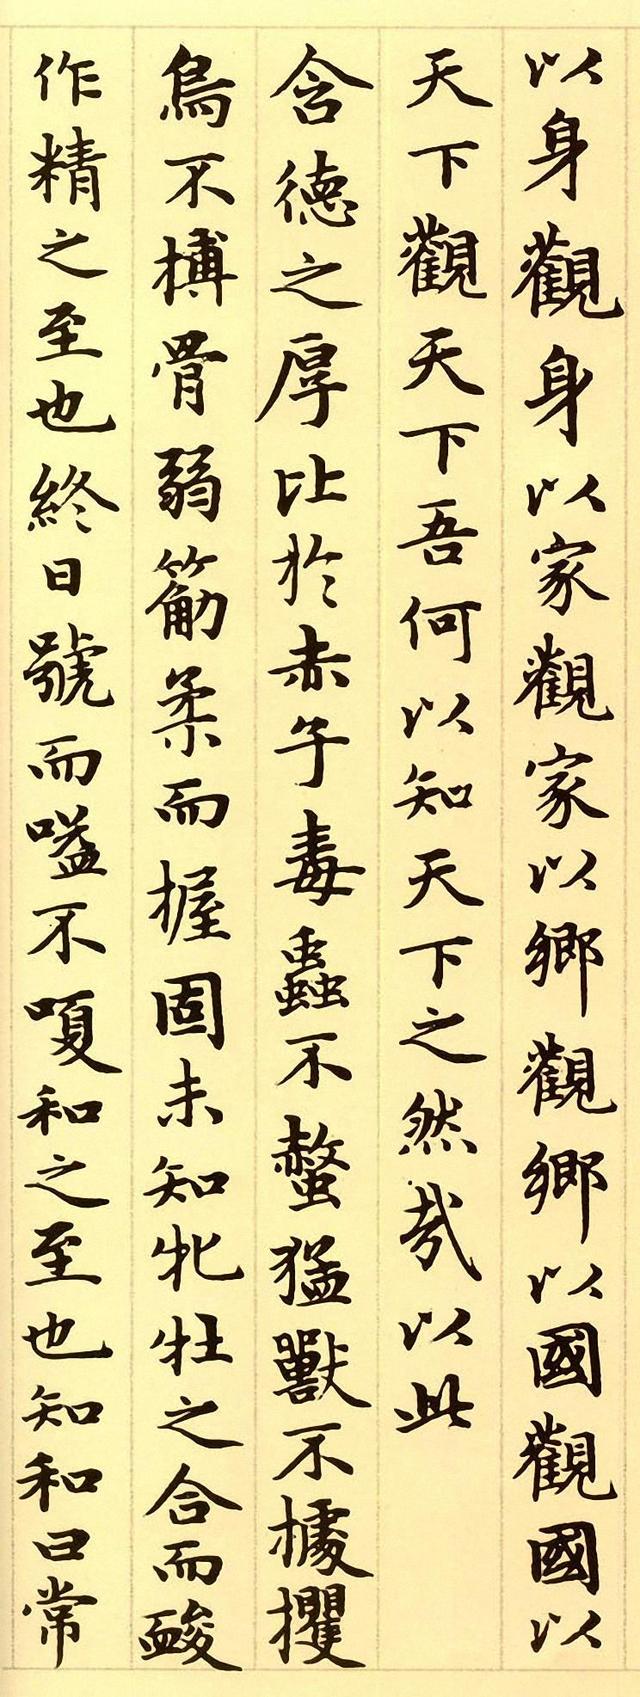 以身觀身以家觀家以鄉觀鄉以國觀國以
天下觀天下吾何以知天下之然哉以此
含德之厚比於赤子毒蟲不螫猛獸不據攫
鳥不搏骨弱筋柔而握固未知牝牡之合而朘
作精之至也終日號而嗌不嗄和之至也知和曰常